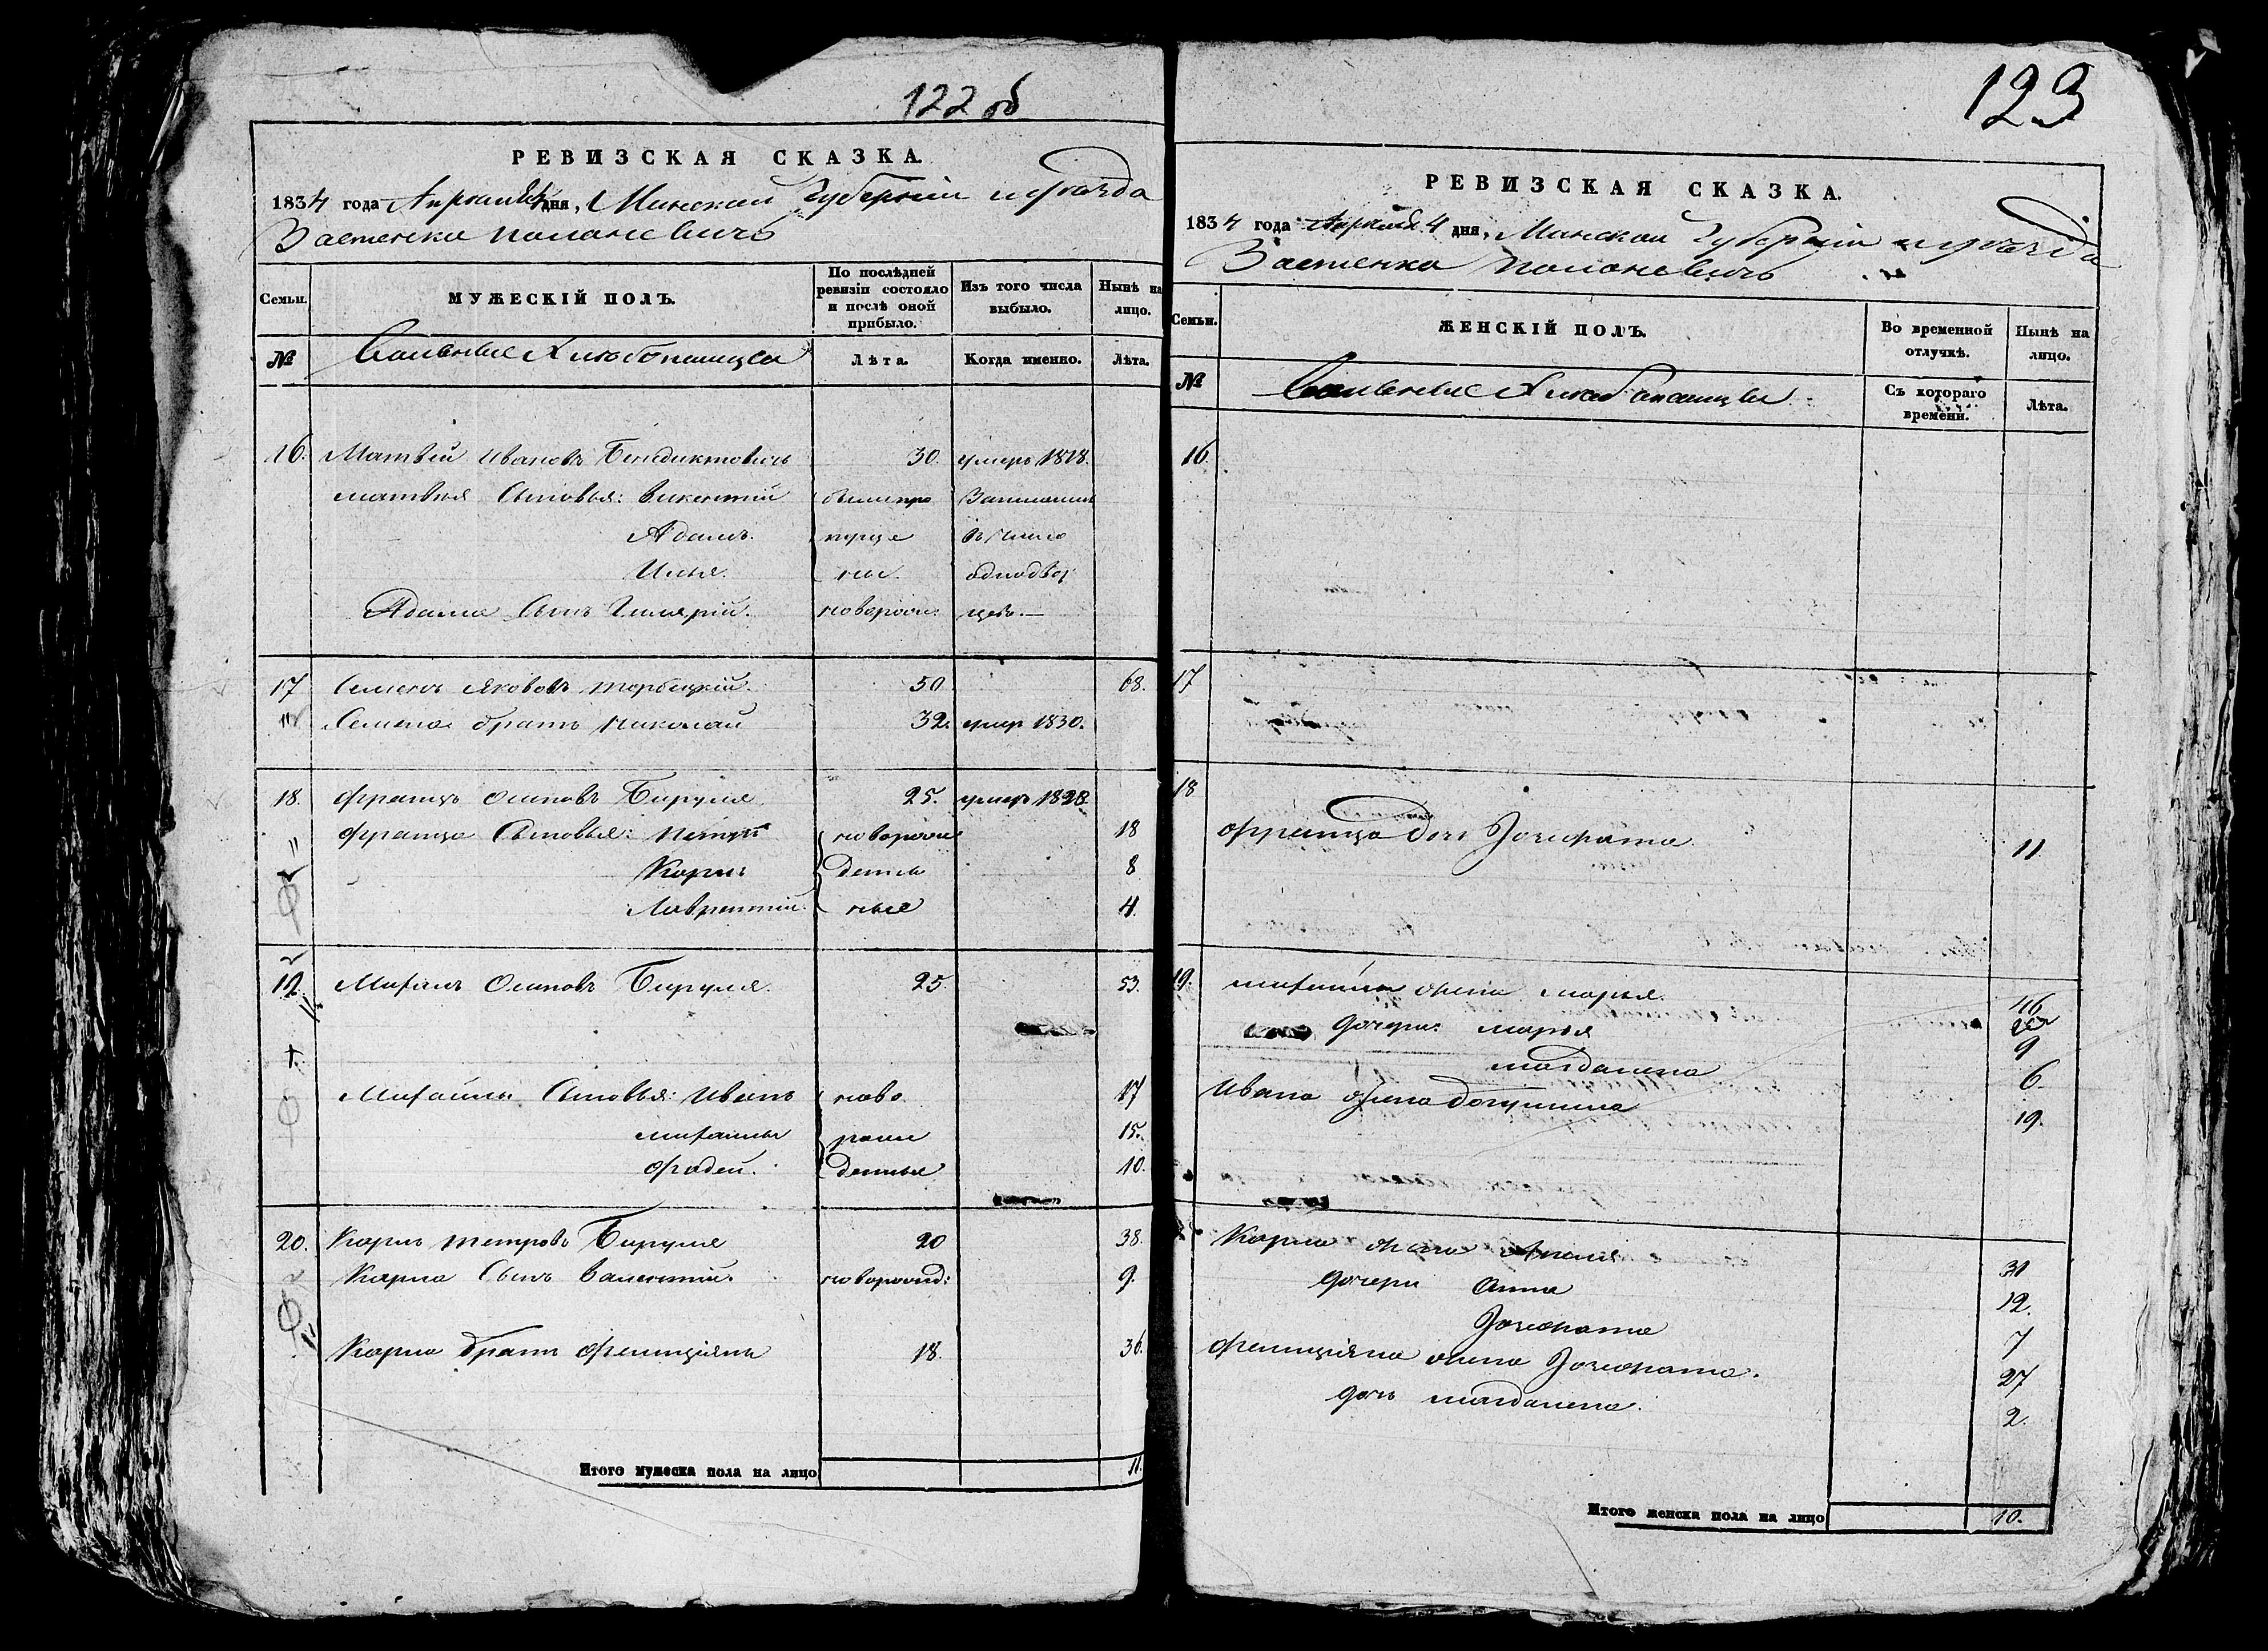 122 об
РЕВИЗСКАЯ СКАЗКА.
1834 года Апреля 4 дня, Минской Губерніи и уезда
Застенка
Семьи.
МУЖЕСКІЙ ПОЛЪ.
По послѣдней ревизіи состояло и послѣ оной прибыло.
Изъ того числа выбыло.
Нынѣ на лицо.
№
Вольные Хлебопашцы
Лѣта.
Когда именно.
Лѣта.
16. Матвей Ивановъ Бенедиктовичъ 30. умеръ 1818.
Матвея Сыновья: Викентій были про Записаны
Адамъ. пуще в число
Илья. ны. однодвор
Адама Сынъ Гилярій. новорожд. цевъ.—
17 Семенъ Якововъ Торбецкій. 50 68.
Семена братъ Николай 32. умер 1830.
18. Францъ Осиповъ Бируля 25. умеръ 1828.
Франца Сыновья: Петръ новорож 18
Карлъ денны 8
Лаврентій ные 4.
19. Михаилъ Осиповъ Бируля. 25. 53.
Михайлы Сыновья: Иванъ ново 17
Михайла рож 15.
Фадей. денные 10.
20. Карлъ Петровъ Бируля 20 38.
Карла Сынъ Валентій. новорожд: 9.
Карла братъ Фелиціянъ 18. 36.
Итого мужеска пола на лицо 11.
123
РЕВИЗСКАЯ СКАЗКА.
1834 года Апреля 4 дня, Минской Губерніи и уезда
Застенка
Семьи.
ЖЕНСКІЙ ПОЛЪ.
Во временной отлучкѣ.
Нынѣ на лицо.
№
Вольные Хлебопашцы
Съ котораго времени.
Лѣта.
16.
17
18
Франца дочь Іозефата. 11
19. Михайлы жена Марья. 46
дочери: Марья
Магдалена 9
6
Ивана жена 19.
Карла жена Анеля 31
дочери Анна 12.
Іозефата 7
Фелиціяна жена Іозефата. 27
дочь Магдалена. 2.
Итого женска пола на лицо 10.